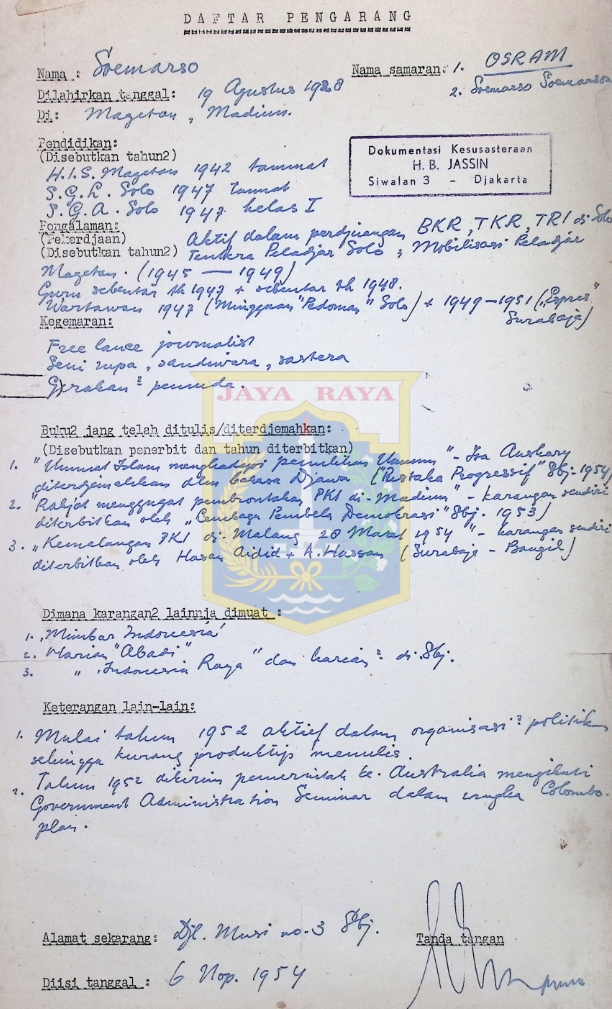 DAFTAR PENGARANG
Nama : Soemarso
Nama samaran: 1. OSRAM
2. Soemarso Soemarsono
Dilahirkan tanggal: 19 Agustus 1928
Di: Magetan, Madiun.
Pendidikan:
(Disebutkan tahun2)
H.I.S. Magetan 1942 tammat
S.G.L. Solo 1947 tammat
S.G.A. Solo 1947 kelas I
Dokumentasi Kesusasteraan
H. B. JASSIN
Siwalan 3 – Djakarta
Pengalaman:
(Pekerdjaan) Aktif dalam perdjuangan BKR, TKR, TRI di Solo
(Disebutkan tahun2) Tentera Peladjar Solo, Mobilisasi Peladjar
Magetan. (1945 — 1949)
Guru sebentar th 1947 + sebentar th 1948.
Wartawan 1947 (Mingguan "Pedoman" Solo) + 1949–1951 („Espres"
Surabaja)
Kegemaran:
Free lance journalist
Seni rupa, sandiwara, sastera
Gerakan2 pemuda.
JAYA RAYA
Buku2 jang telah ditulis/diterdjemahkan:
(Disebutkan penerbit dan tahun diterbitkan)
1. "Ummat Islam menghadapi pemilihan Umum" - Isa Anshary
diterdjemahkan dlm bahasa Djawa ("Pustaka Progressif" Sbj. 1954)
2. "Rakjat menggugat pembrontakan PKI di Madiun" - karangan sendiri
diterbitkan oleh „Lembaga Pembela Demokrasi" Sbj. 1953)
3. „Kemalangan PKI di Malang 28 Maret 1954" - karangan sendiri
diterbitkan oleh Hasan Aidid & A. Hassan (Surabaja - Bangil)
Dimana karangan2 lainnja dimuat :
1. „Mimbar Indonesia"
2. Harian "Abadi"
3. " „Indonesia Raya" dan harian2 di Sbj.
Keterangan lain-lain:
1. Mulai tahun 1952 aktif dalam organisasi2 politik
sehingga kurang produktip menulis.
2. Tahun 1952 dikirim pemerintah ke Australia mengikuti
Government Administration Seminar dalam rangka Colombo
plan.
Alamat sekarang: Djl. Musi no. 3 Sbj.
Tanda tangan
Diisi tanggal : 6 Nop. 1954